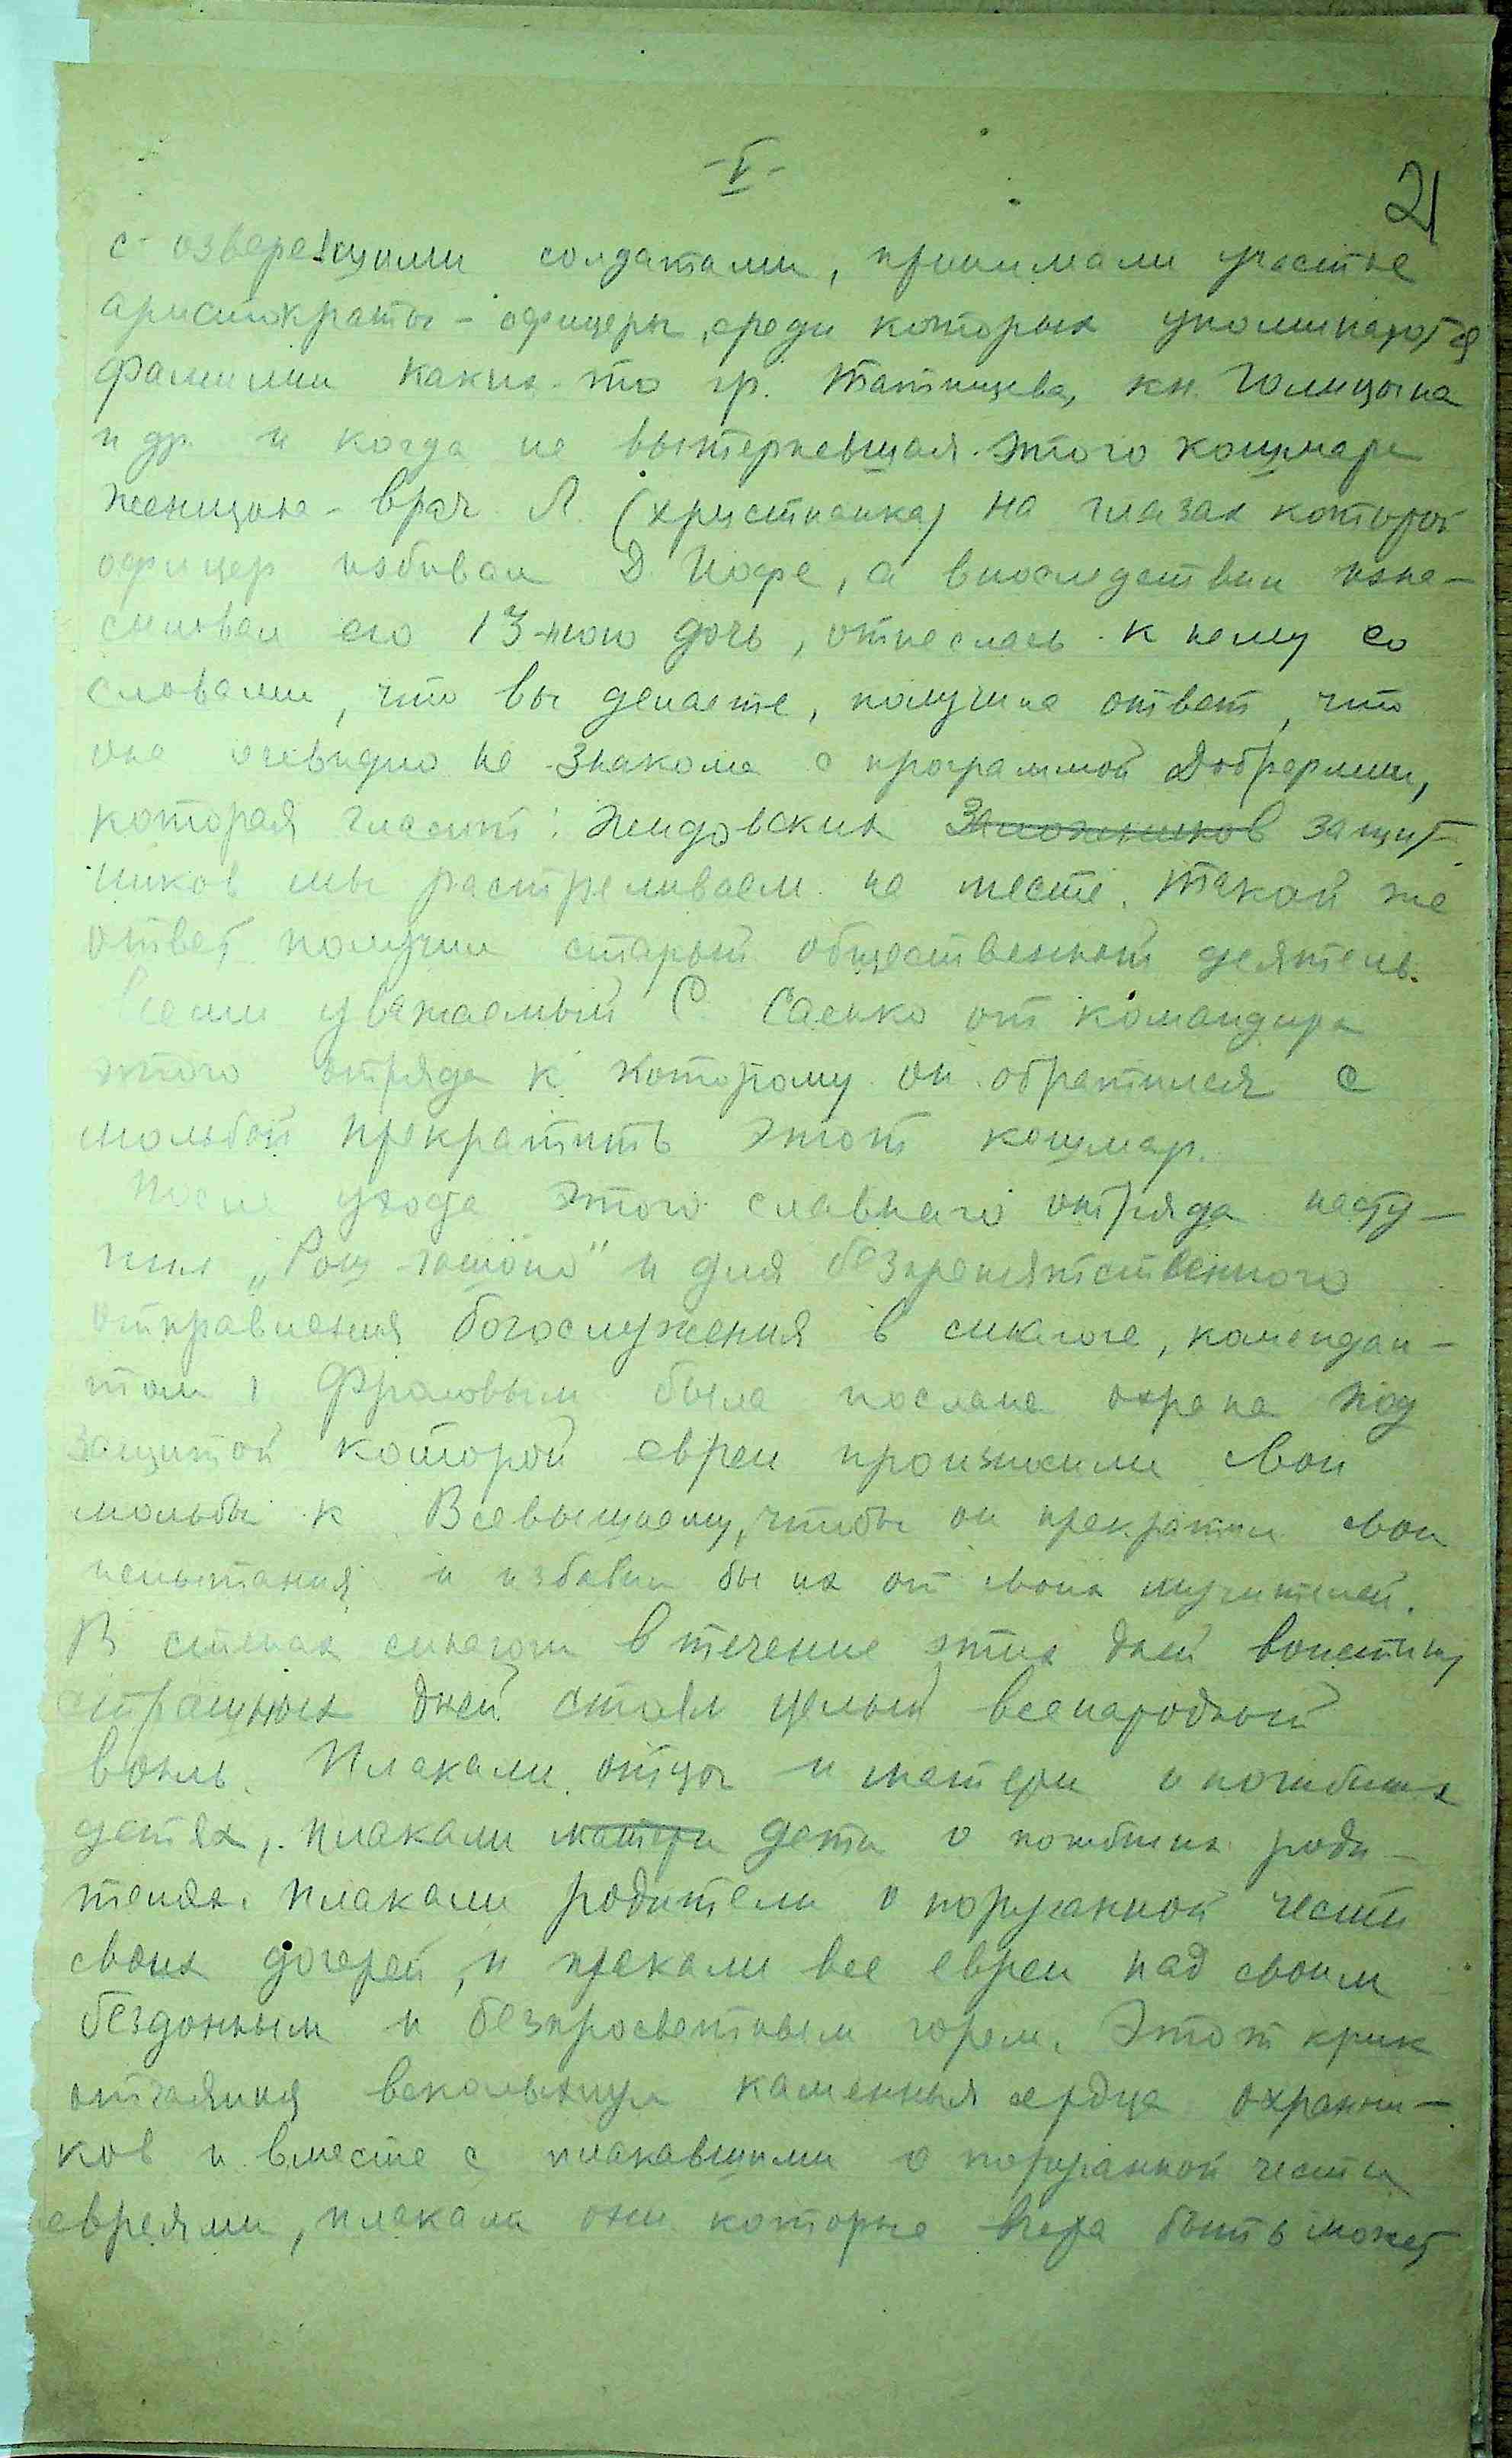 -V-
21
с озверевшими солдатами, принимали участие
аристократы - офицеры, среди которых упоминаются
фамилии каких-то гр. Татищева, кн. Голицына
и др. и когда не вытерпевшая этого кошмара
женщина - врач Л. (христианка) на глазах которой
офицер избивал Д. Иофе, а впоследствии изна-
силовал его 13-тою дочь, отнеслась к нему со
словами, что вы делаете, получила ответ, что
она очевидно не знакома с программой Добрармии,
которая гласит: Жидовских защит-
ников мы растреливаем на месте. Такой же
ответ получил старый общественный деятель
всеми уважаемый С. Саенко от командира
этого отряда к которому он обратился с
мольбой прекратить этот кошмар.
После ухода этого славнаго отряда насту-
пил „Рош-гашоно" и для безпрепятственного
отправления богослужения в синагоге, комендан-
том Фроловым была послана охрана под
защитой которой евреи произносили свои
мольбы к Всевышнему, чтобы он прекратил свои
испытания и избавил бы их от своих мучителей.
В стенах синагоги в течение этих дней воистину
страшных дней стоял целый всенародный
вопль. Плакали отцы и матери о погибших
детях, плакали матери дети о погибших роди-
телях. Плакали родители о поруганной чести
своих дочерей, и плакали все евреи над своим
бездонным и безпросветным горем. Этот крик
отчаяния всколыхнул каменныя сердца охранни-
ков и вместе с плакавшими о поруганной чести
евреями, плакали они которые вчера быть может